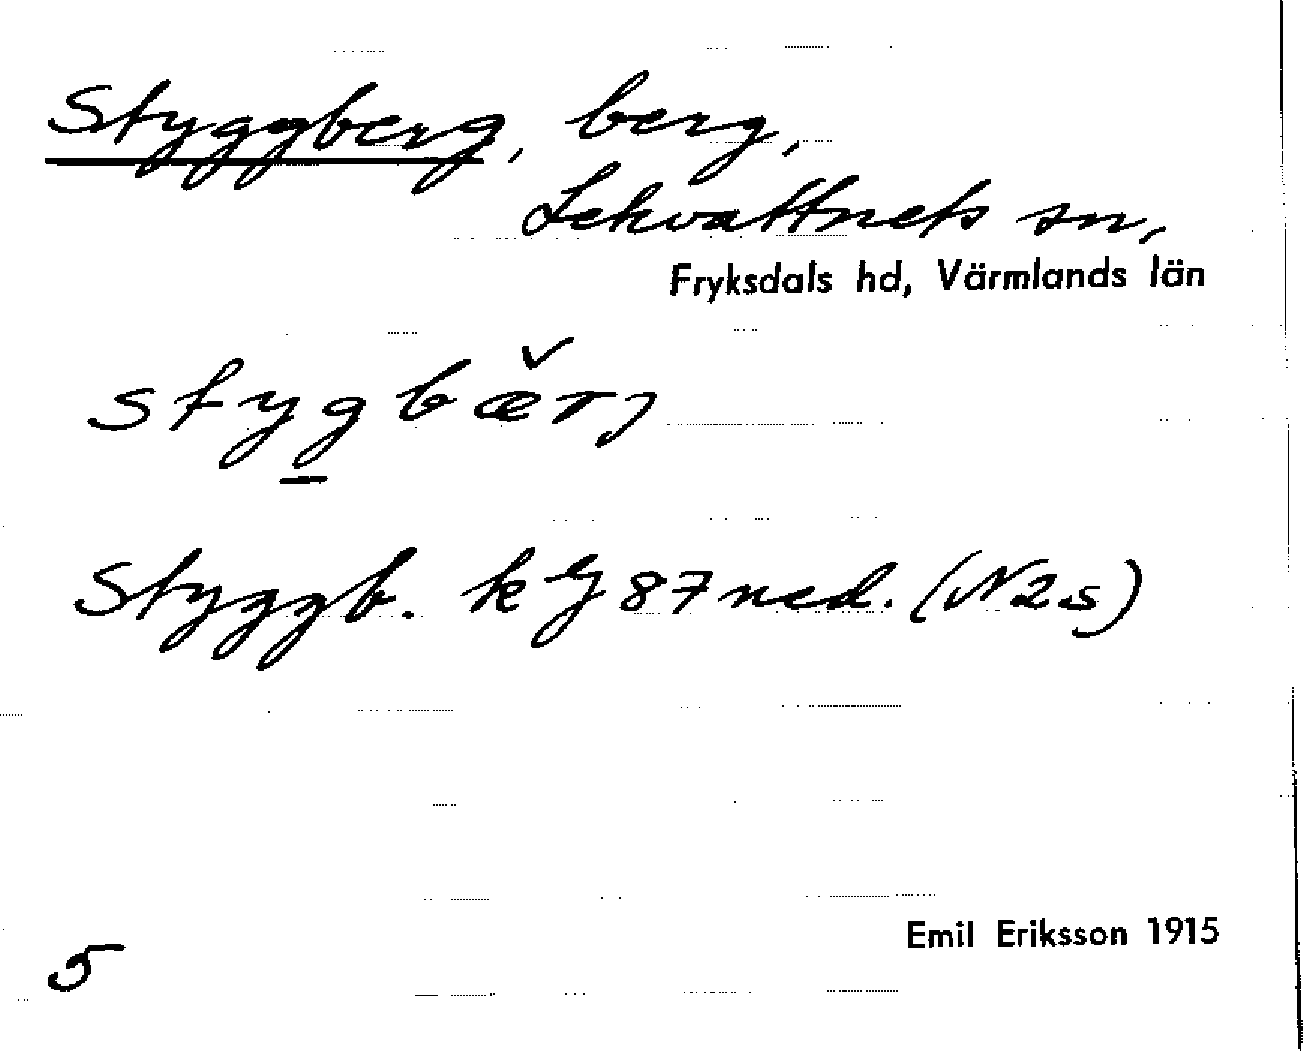 Styggberg, berg,
Lekvattnets sn,
Fryksdals hd, Värmlands län
stygbærj
Styggb. k eg 87 ned. (N2s)
5
Emil Eriksson 1915